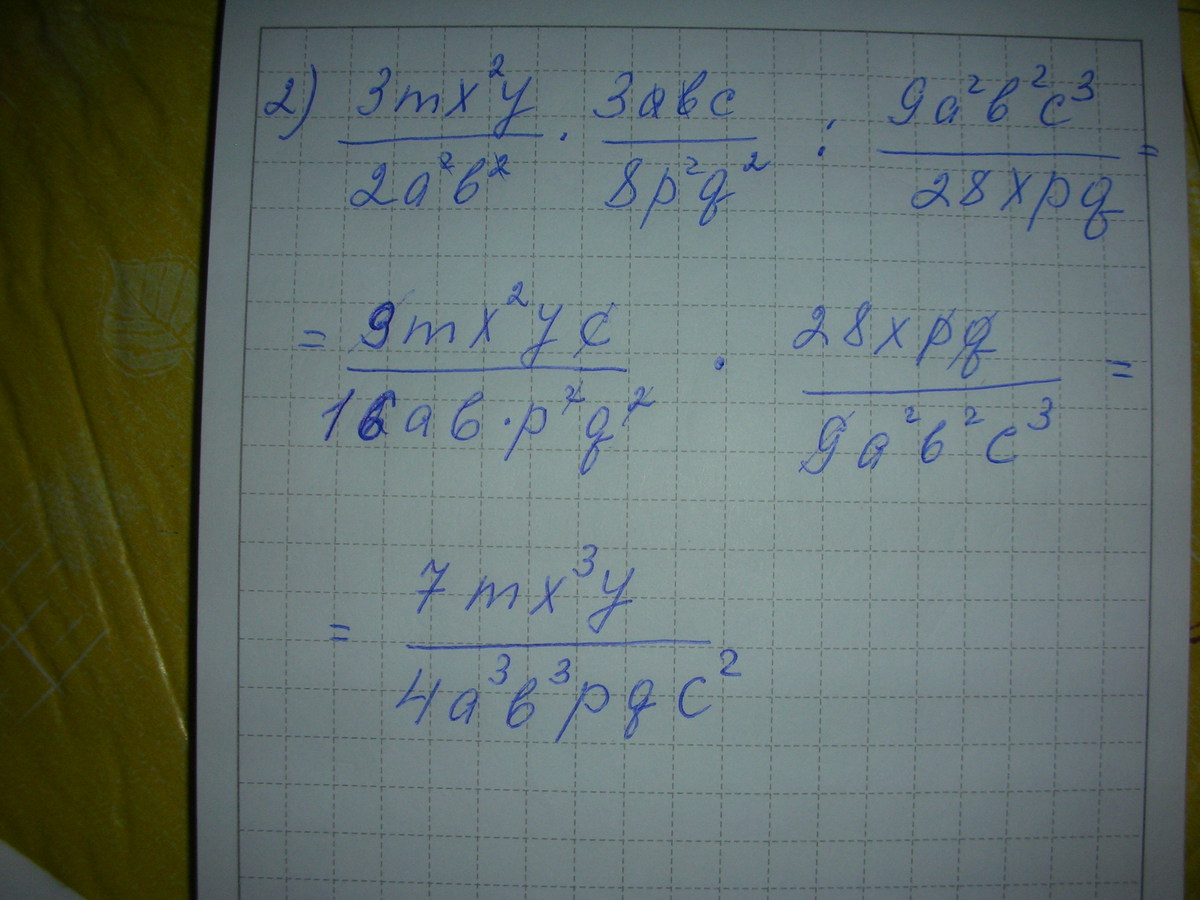 2) 3mx²y / 2a²в² · 3авс / 8p²q² : 9a²в²c³ / 28xpq =
= 9mx²yc / 16ав·p²q² · 28xpq / 9a²в²c³ =
= 7mx³y / 4a³в³pqc²